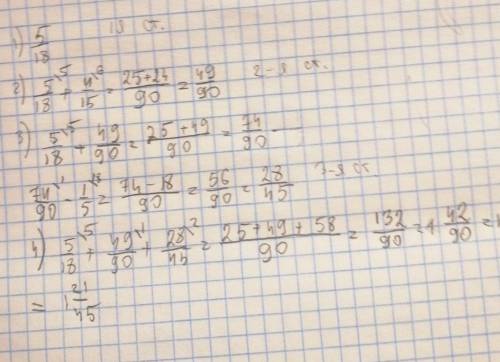 1) 5/18 1я ст.
2) 5/18 \5 + 4/15 \6 = 25+24/90 = 49/90 2-я ст.
3) 5/18 \5 + 49/90 = 25+49/90 = 74/90
74/90 \1 - 1/5 \18 = 74-18/90 = 56/90 = 28/45 3-я ст.
4) 5/18 \5 + 49/90 \1 + 28/45 \2 = 25+49+58/90 = 132/90 = 1 42/90 =
= 1 21/45